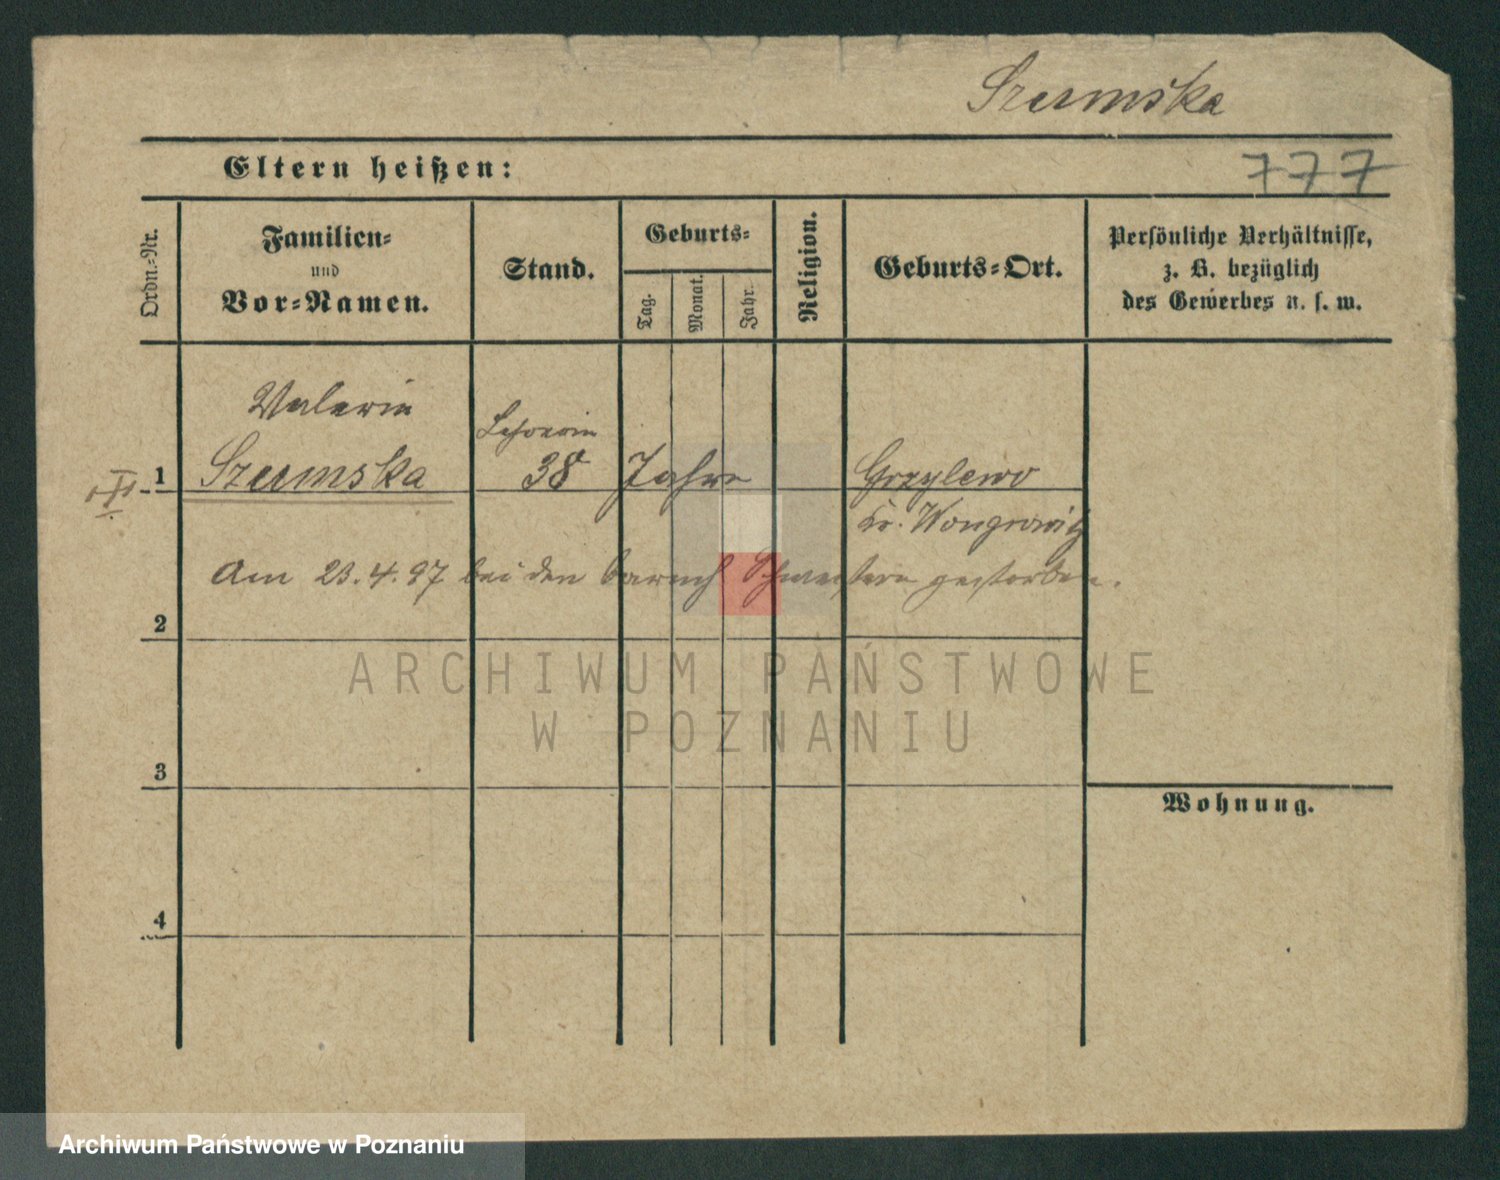 Szumska
Eltern heißen:
777
Ordn.-Nr.
Familien-
und
Vor-Namen.
Stand.
Geburts-
Tag.
Monat.
Jahr.
Religion.
Geburts-Ort.
Persönliche Verhältnisse,
z. B. bezüglich
des Gewerbes u. s. w.
Valerie
Lehrerin
1 Szumska 38 Jahre
Kr. Wongrowitz
Am 23.4.97 bei den Schwestern gestorben.
2
ARCHIWUM PAŃSTWOWE
W POZNANIU
3
Wohnung.
4
Archiwum Państwowe w Poznaniu